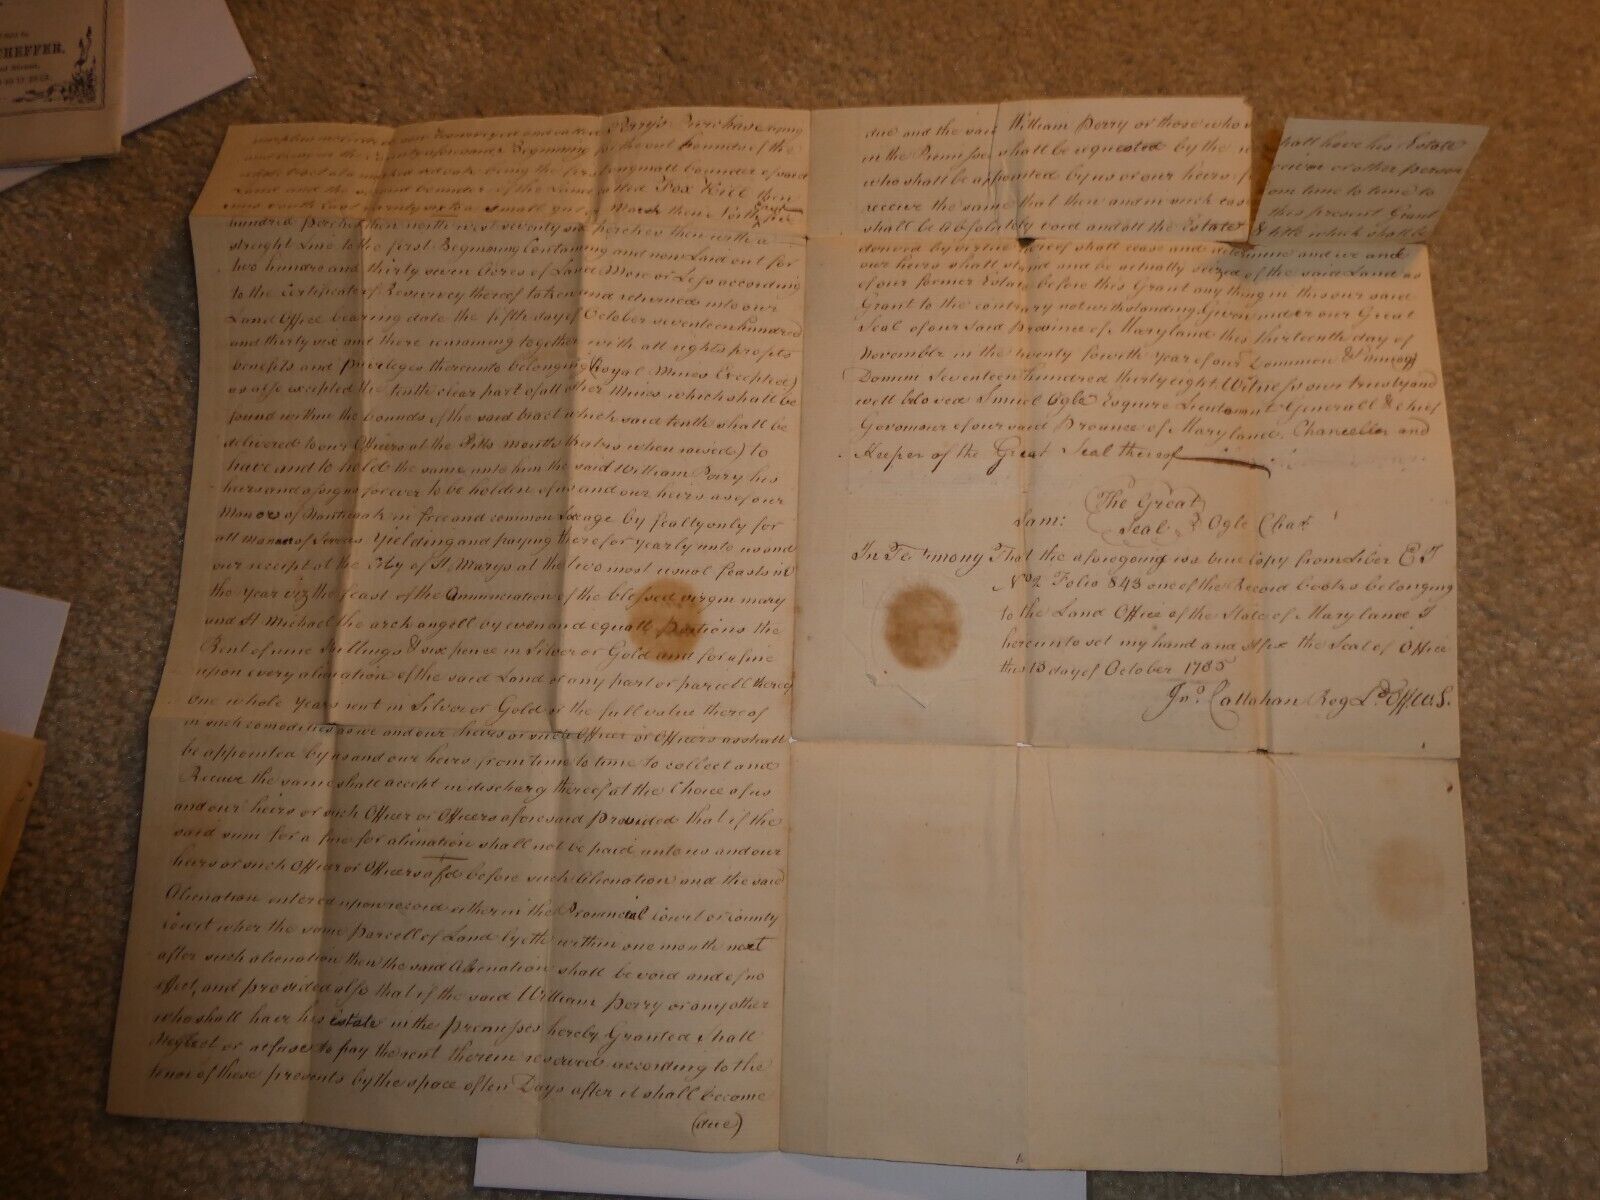 CHEFFER,
Perry's Purchase lying
and being in the County aforesaid Beginning at the out bounds of the
Land and the second bounder of the Land called Fox Hill then
hundred Perches then north west seventy six perches then with a
streight Line to the first Beginning Containing and now Laid out for
two hundred and thirty seven Acres of Land More or Less according
to the Certificate of Resurvey thereof taken and returned into our
Land Office bearing date the fifth day of October seventeen hundred
and thirty six and there remaining together with all rights profits
benefits and Priviledges thereunto belonging (Royal Mines Excepted)
as also excepted the tenth clear part of all other Mines which shall be
found within the bounds of the said tract which said tenth shall be
delivered to our Officers at the Pitts mouth (thatis when raised) to
have and to hold the same unto him the said William Perry his
heirs and assigns forever to be holden of us and our heirs as of our
Manor of Nanticoak in free and common Socage by fealty only for
all Manner of Services Yielding and paying therefor yearly unto us and
our receipt at the City of St. Marys at the two most usual feasts in
the year viz the feast of the Annunciation of the blessed virgin mary
and St Michael the arch angell by even and equall Portions the
Rent of nine Shillings & six pence in Silver or Gold and for a fine
upon every alienation of the said Land or any part or parcell thereof
one whole Years rent in Silver or Gold or the full value thereof
in such comodities as we and our heirs or such Officer or Officers as shall
be appointed by us and our heirs from time to time to collect and
Receive the same shall accept in discharg thereof at the Choice of us
and our heirs or such Officer or Officers aforesaid Provided that if the
said sum for a fine for alienation shall not be paid unto us and our
heirs or such Officer or Officers afd before such Alienation and the said
Alienation entered upon record either in the Provincial court or county
court wher the same Parcell of Land lyeth within one month next
after such alienation then the said Alienation shall be void and of no
effect, and provided also that if the said William Perry or any other
who shall have his estate in the Premisses hereby Granted shall
Neglect or refuse to pay the rent therein reserved according to the
tenor of these presents by the space of ten Days after it shall become
(due)
due and the said William Perry or those who shall have his Estate
in the Premisses shall be requested by the receiver or other person
who shall be appointed by us or our heirs from time to time to
receive the same that then and in such case this present Grant
shall be absolutely void and all the Estate & title which shall be
derived by virtue hereof shall cease and determine and we and
our heirs shall stand and be actually seized of the said Land as
of our former Estate before this Grant any thing in this our said
Grant to the contrary notwithstanding Given under our Great
Seal of our said Province of Maryland this thirteenth day of
November in the twenty fourth Year of our Dominion &
Domini Seventeen hundred thirty eight Witness our trusty and
well beloved Samuel Ogle Esquire Lieutenant Generall & chief
Governour of our said Province of Maryland, Chancellor and
Keeper of the Great Seal thereof
The Great
Sam: Seal Ogle Chan
In Testimony That the aforegoing is a true Copy from Liber E I
No 2 Folio 843 one of the Record books belonging
to the Land Office of the State of Maryland I
hereunto set my hand and Affix the Seal of Office
this 13 day of October 1785
Jno. Callahan Reg Ld. Office